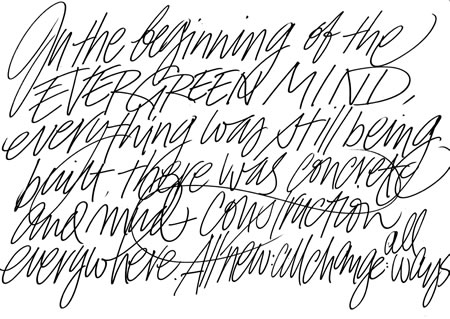 In the beginning of the
EVERGREEN MIND,
everything was still being
built, there was concrete
and mud + construction
everywhere. All new: all change: all ways